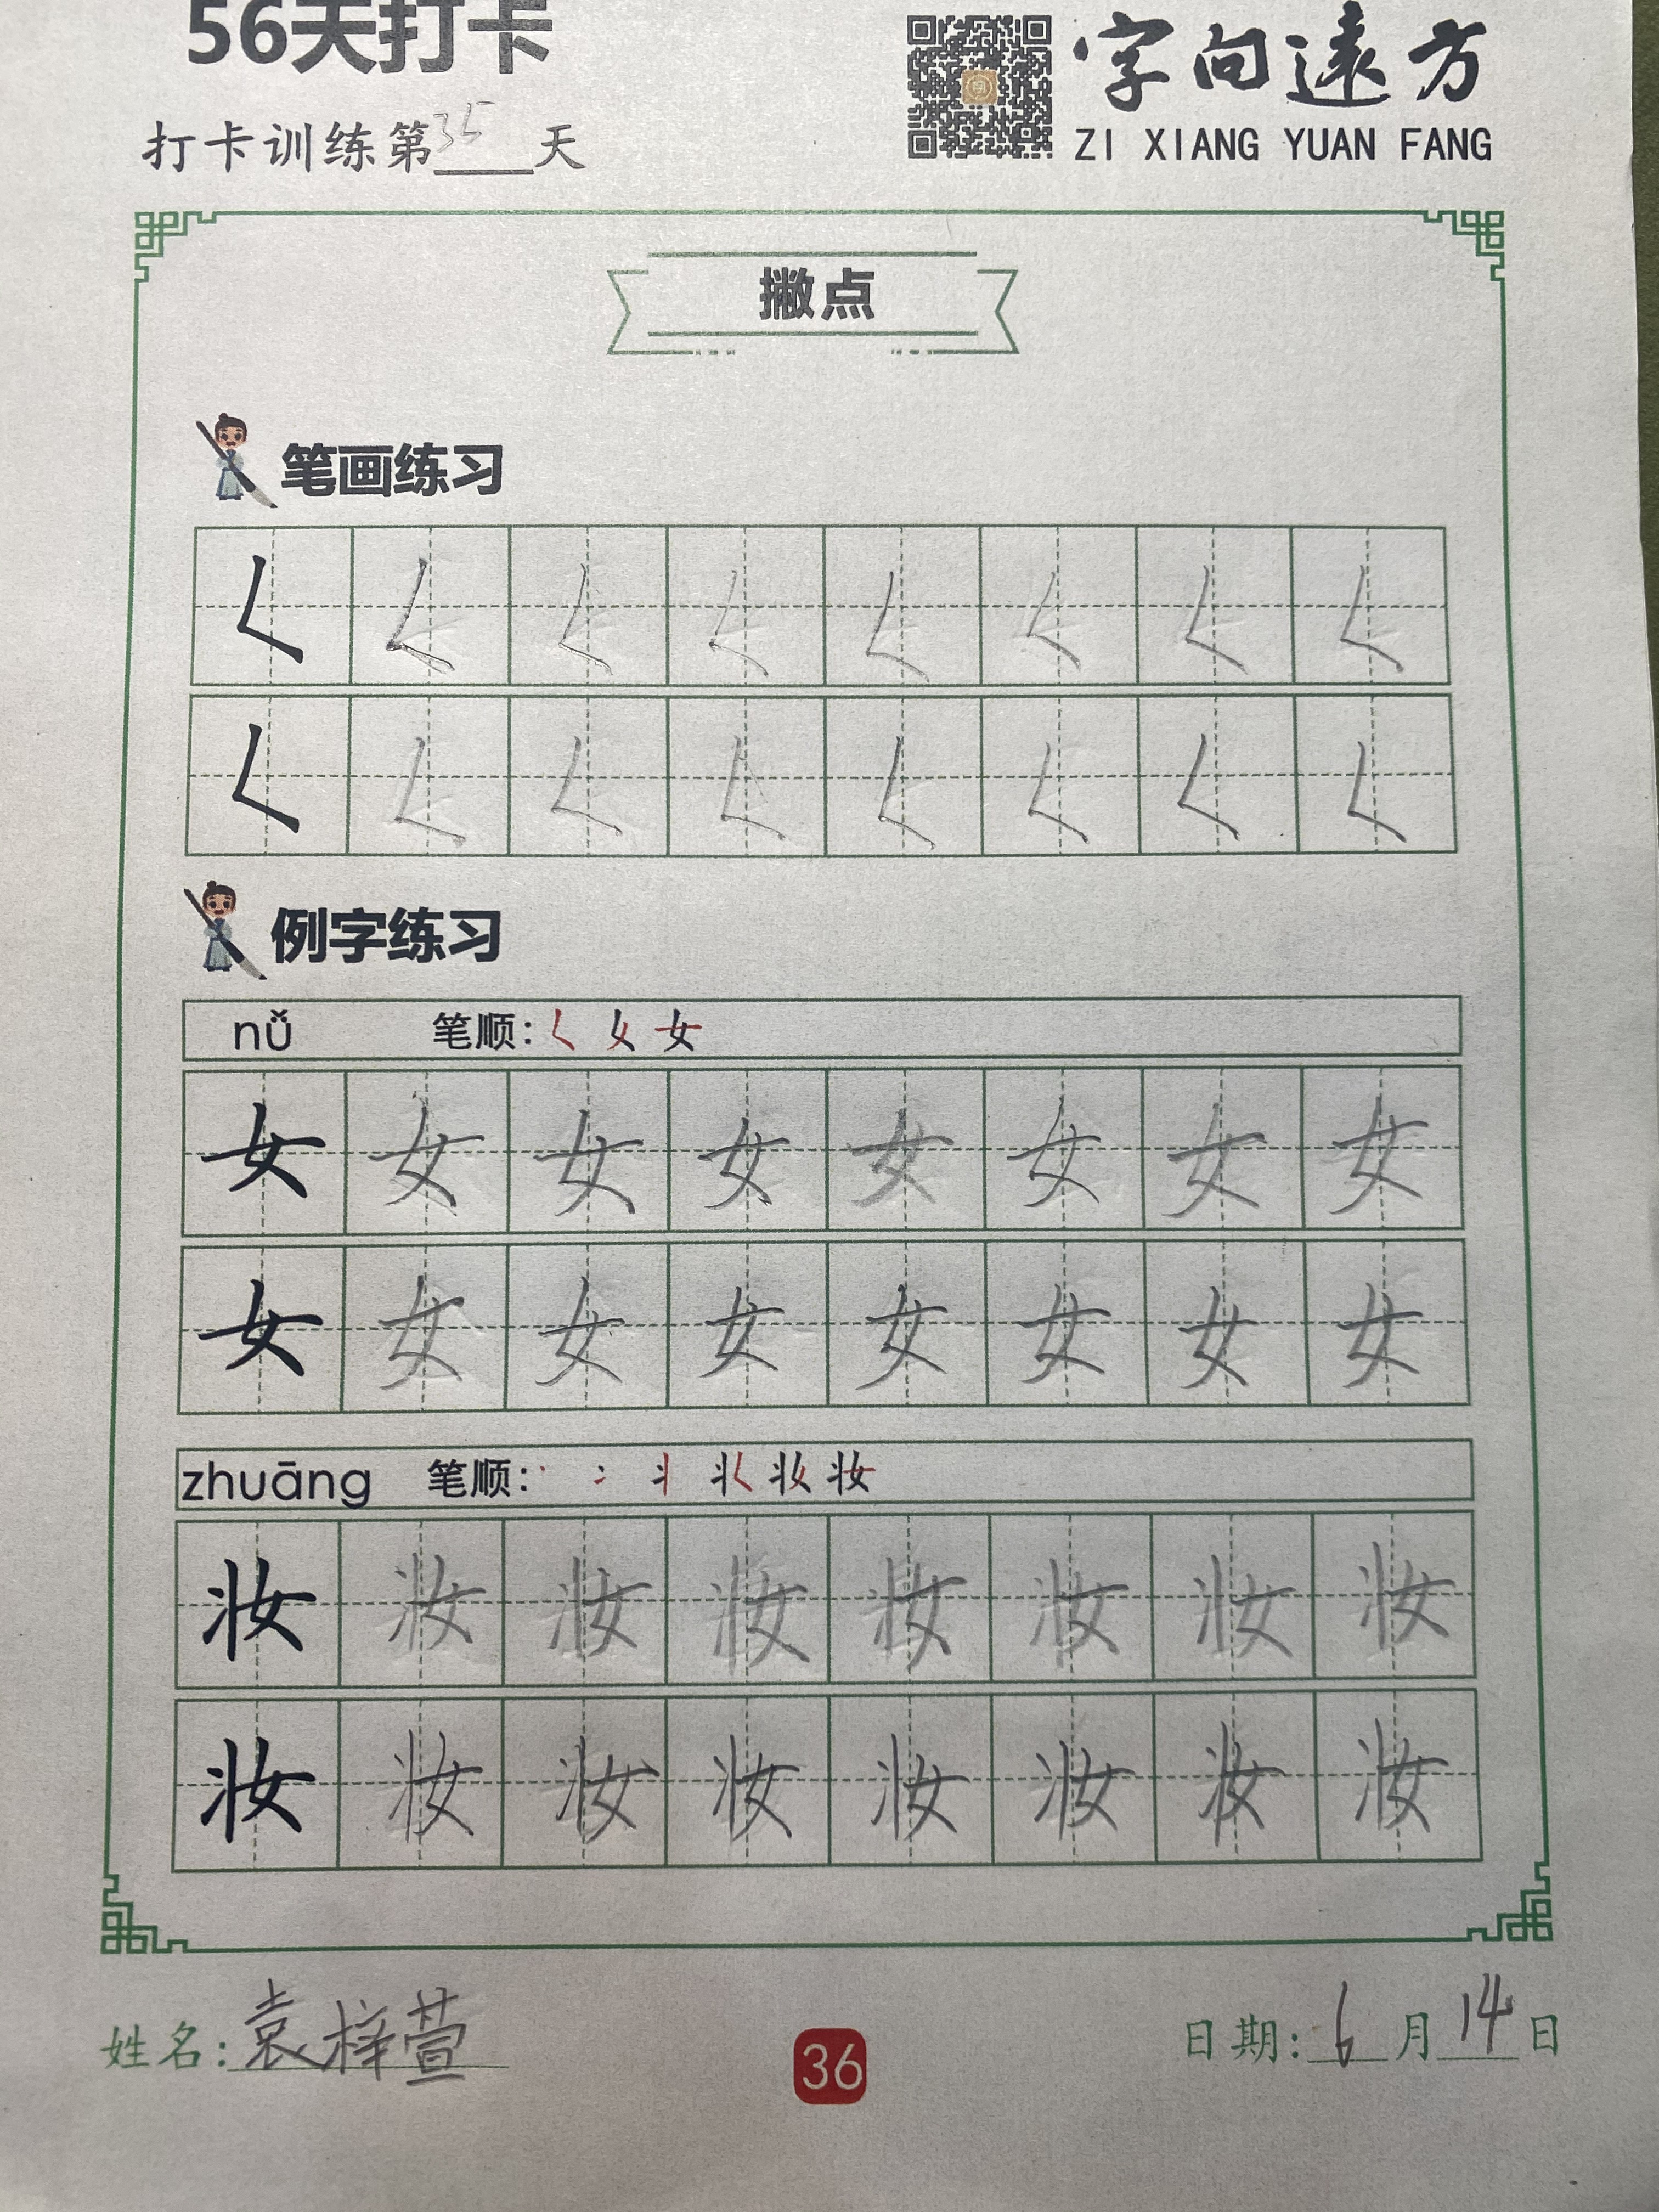 56天打卡
字向遠方
打卡训练第35天
ZI XIANG YUAN FANG
撇点
笔画练习
𡿨 𡿨 𡿨 𡿨 𡿨 𡿨 𡿨 𡿨
𡿨 𡿨 𡿨 𡿨 𡿨 𡿨 𡿨 𡿨
例字练习
nǚ 笔顺: 𡿨 女
女 女 女 女 女 女 女 女
女 女 女 女 女 女 女 女
zhuāng 笔顺: 丶 冫 丬 妆
妆 妆 妆 妆 妆 妆 妆 妆
妆 妆 妆 妆 妆 妆 妆 妆
姓名:袁梓萱
36
日期:6月14日